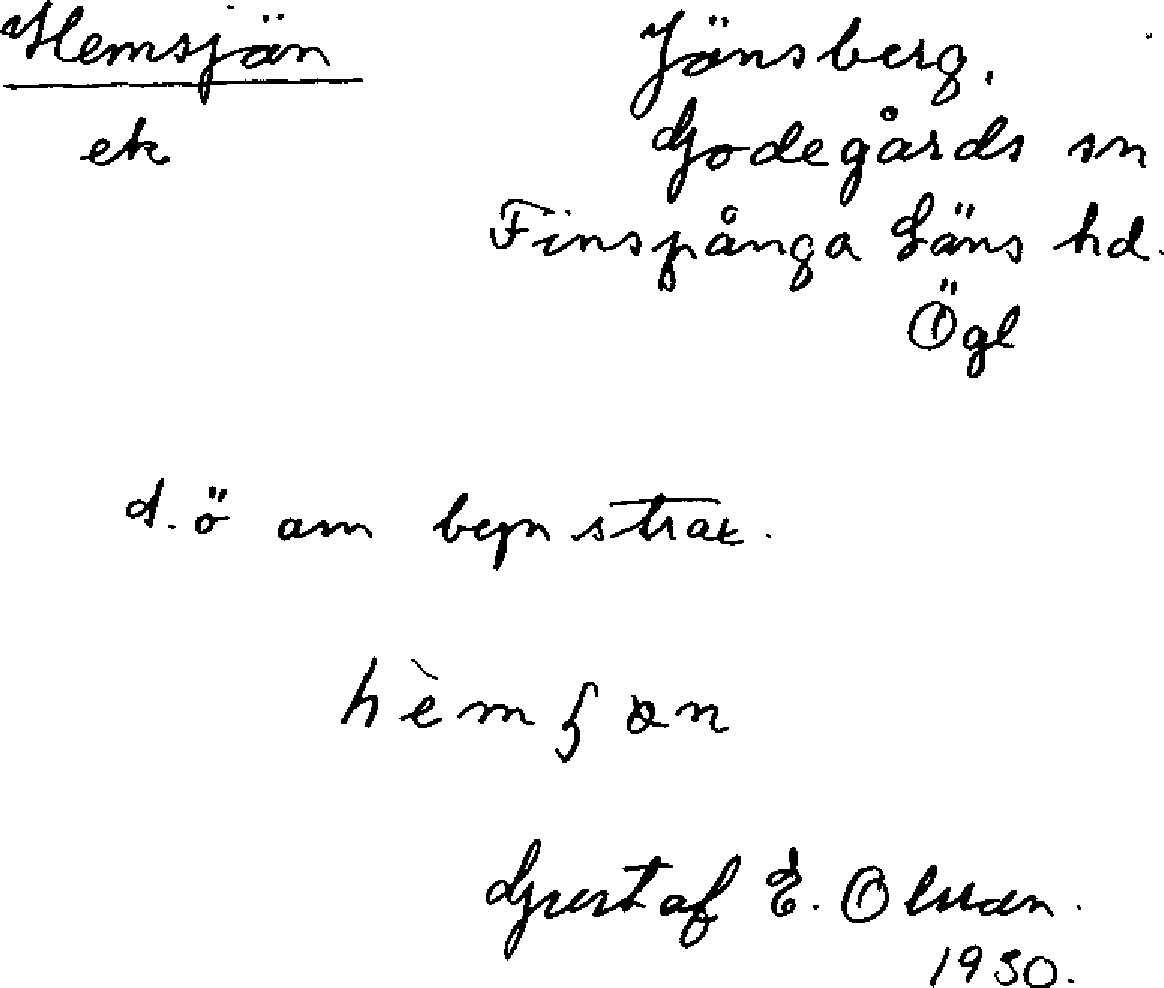 Hemsjön
ek
Jönsberg.
Godegårds sn
Finspånga Läns hd.
Ögl
d. ö om
hèmʃ
Gustaf E. Olsson.
1930.